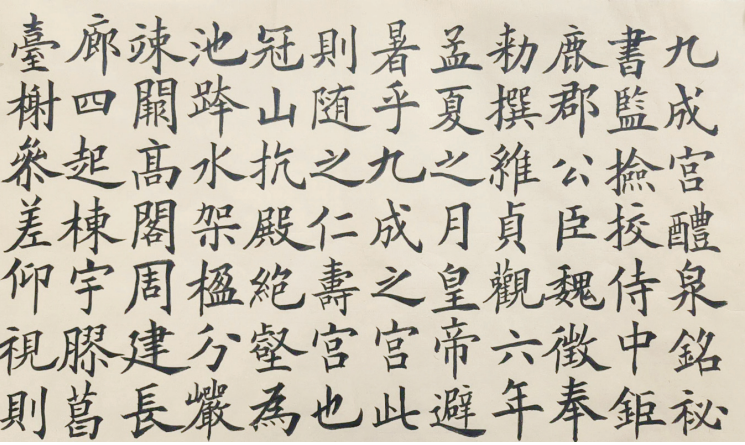 九成宮醴泉銘祕
書監撿挍侍中鉅
鹿郡公臣魏徵奉
勑撰維貞觀六年
孟夏之月皇帝避
暑乎九成之宮此
則随之仁壽宮也
冠山抗殿絕壑為
池跨水架楹分巖
竦闕高閣周建長
廊四起棟宇膠葛
臺榭叅差仰視則